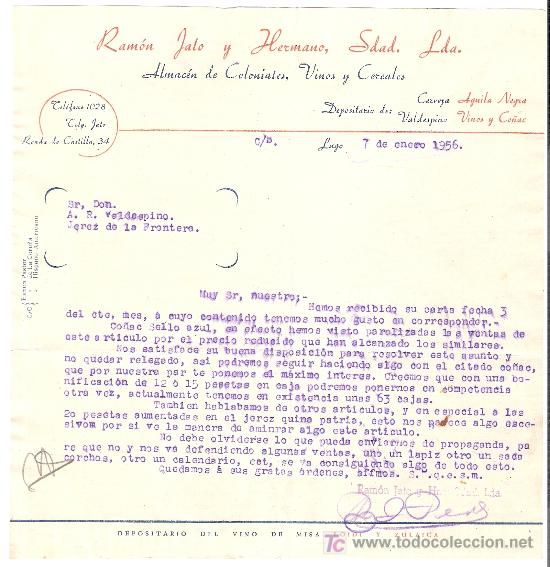 Ramón Jato y Hermano, Sdad. Lda.
Almacén de Coloniales, Vinos y Cereales
Teléfono 1028
Telg. Jato
Ronda de Castilla, 34
Depositario de:
Cerveza Aguila Negra
Valdespino Vinos y Coñac
C/B. Lugo 7 de enero 1956.
Sr, Don.
A. R. Valdespino.
Jerez de la Frontera.
Pastor
de La Coruña
Hispano Americano
Muy Sr, nuestro;-
Hemos recibido su carta fecha 3
del cte, mes, á cuyo contenido tenemos mucho gusto en corresponder.-
Coñac Sello azul, en efecto hemos visto paralizadas las ventas de
este articulo por el precio reducido que han alcanzado los similares.
Nos satisface su buena disposición para resolver este asunto y
no quedar relegado, asi podremos seguir haciendo algo con el citado coñac,
que por nuestra parte ponemos el máximo interes. Creemos que con una bo-
nificación de 12 ó 15 pesetas en caja podremos ponernos en competencia
otra vez, actualmente tenemos en existencia unas 63 cajas.
Tambien hablabamos de otros articulos, y en especial a las
20 pesetas aumentadas en el jerez quina patria, esto nos parece algo exce-
sivom por si ve la manera de aminrar algo este artículo.
No debe olviderse lo que pueda enviarnos de propaganda, pa
re que no y nos va defendiendo algunas ventas, uno un lapiz otro un saca
corchos, otro un calendario, cet, se va consiguiendo algo de todo esto.
Quedamos á sus gratas órdenes, affmos. S. q.e.s.m.
Ramón Jato y Hno. Sdad. Lda.
DEPOSITARIO DEL VINO DE MISA LOIDI Y ZULAICA
todocoleccion.net